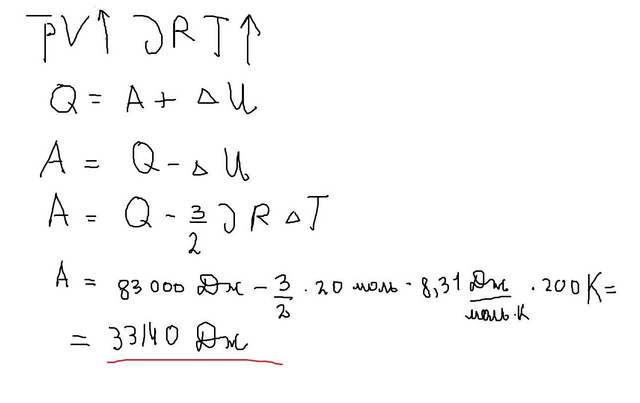 p̅V↑ νRT↑
Q = A + ΔU
A = Q - ΔU
A = Q - 3/2 νRΔT
A = 83 000 Дж - 3/2 · 20 моль · 8,31 Дж/моль·К · 200 К =
= 33140 Дж